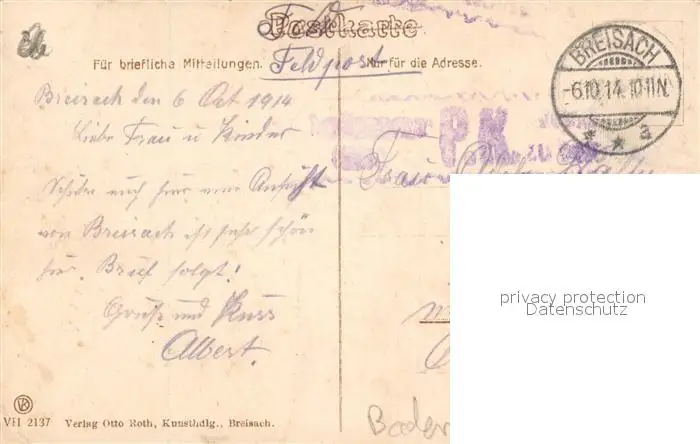 Feld
Postkarte
Für briefliche Mitteilungen.
Feldpost
Nur für die Adresse.
BREISACH
-6.10.14.10-11N.
* a
P.K.
Breisach den 6 Oct 1914
Liebe Frau u Kinder
Schicke euch hier eine Ansicht
von Breisach ist sehr schön
hier. Brief folgt!
Gruß und Kuss
Albert.
Frau
Baden
privacy protection
Datenschutz
VII 2137 Verlag Otto Roth, Kunsthdlg., Breisach.